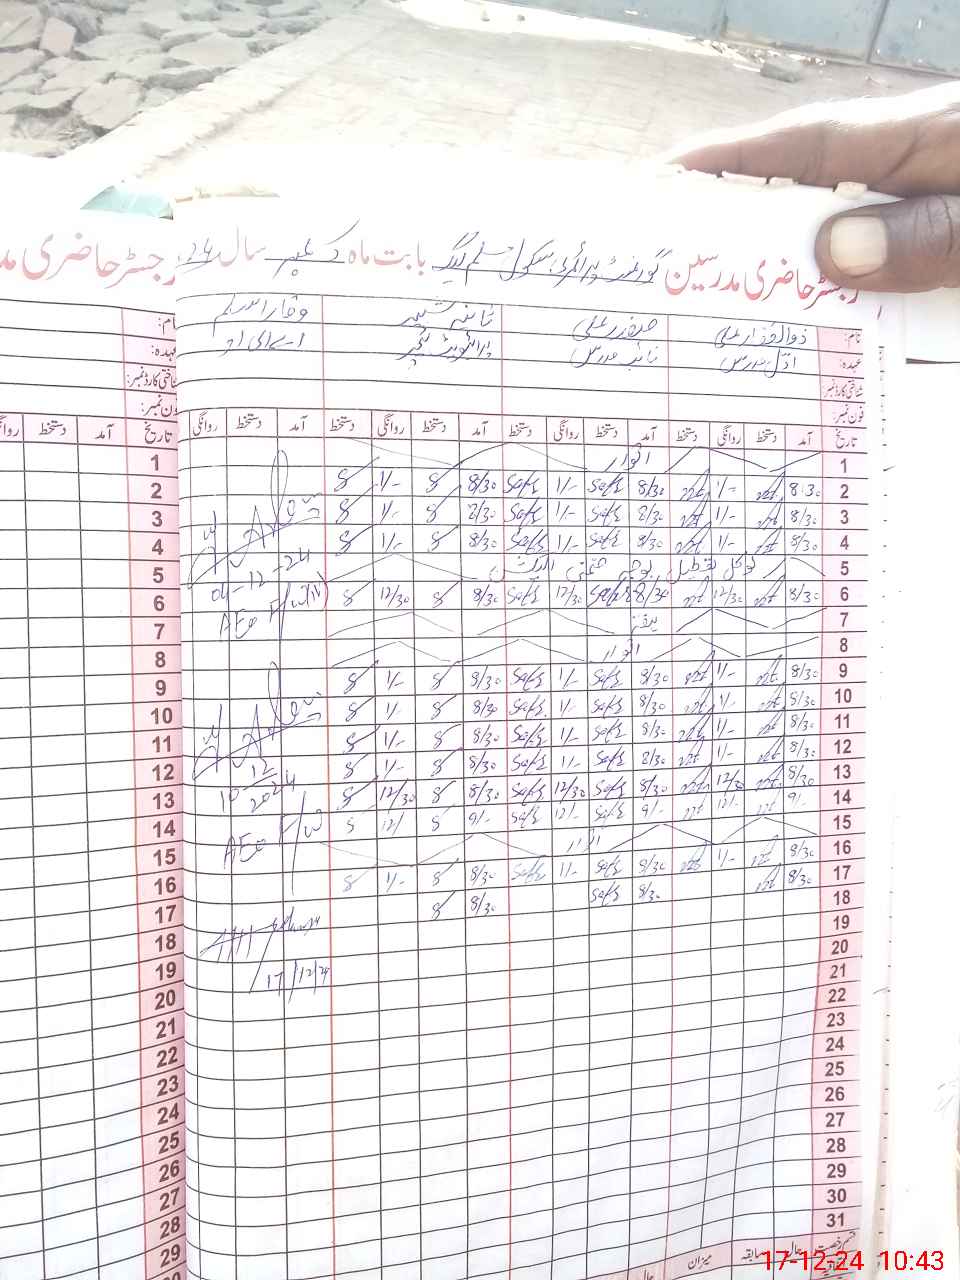 رجسٹر حاضری مدرسین گورنمنٹ پرائمری سکول مسلم لیگ بابت ماہ دسمبر سال 24
نام: ذوالفقار علی صفدر علی ثانیہ شبیر وقار اسلم
عہدہ: اوّل مدرس نائب مدرس پرائیویٹ ٹیچر اے ای او
شناختی کارڈ نمبر:
فون نمبر:
تاریخ آمد دستخط روانگی دستخط آمد دستخط روانگی دستخط آمد دستخط روانگی دستخط آمد دستخط روانگی
1 اتوار
2 8:30 1/- 8/30 Safd 1/- Safd 8/30 8 1/- 8
3 8/30 1/- 8/30 Safd 1/- Safd 8/30 8 1/- 8
4 8/30 1/- 8/30 Safd 1/- Safd 8/30 8 1/- 8
5 لوکل تعطیل بوجہ ضمنی الیکشن
04-12-24
6 8/30 12/30 8/30 Safd 12/30 Safd 8/30 8 12/30 8
AEO F/W(IV)
7
8 اتوار
9 8/30 1/- 8/30 Safd 1/- Safd 8/30 8 1/- 8
10 8/30 1/- 8/30 Safd 1/- Safd 8/30 8 1/- 8
11 8/30 1/- 8/30 Safd 1/- Safd 8/30 8 1/- 8
12 8/30 1/- 8/30 Safd 1/- Safd 8/30 8 1/- 8
10-12-2024
13 8/30 12/30 8/30 Safd 12/30 Safd 8/30 8 12/30 8
14 9/- 12/- 9/- Safd 12/- Safd 9/- 8 12/- 8
AEO F/W
15 اتوار
16 8/30 1/- 8/30 Safd 1/- Safd 8/30 8 1/- 8
17 8/30 8/30 Safd 8/30 8
18
17/12/24
19
20
21
22
23
24
25
26
27
28
29
30
31
میزان سابقہ حال
رجسٹر حاضری مد
نام:
عہدہ:
شناختی کارڈ نمبر:
فون نمبر:
تاریخ آمد دستخط روانگی
1
2
3
4
5
6
7
8
9
10
11
12
13
14
15
16
17
18
19
20
21
22
23
24
25
26
27
28
29
17-12-24 10:43